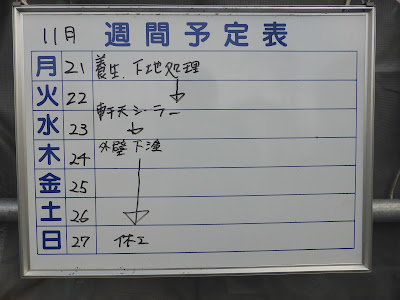 11月 週間予定表
月 21 養生、下地処理
火 22
水 23 軒天シーラー
木 24 外壁下塗
金 25
土 26
日 27 休工